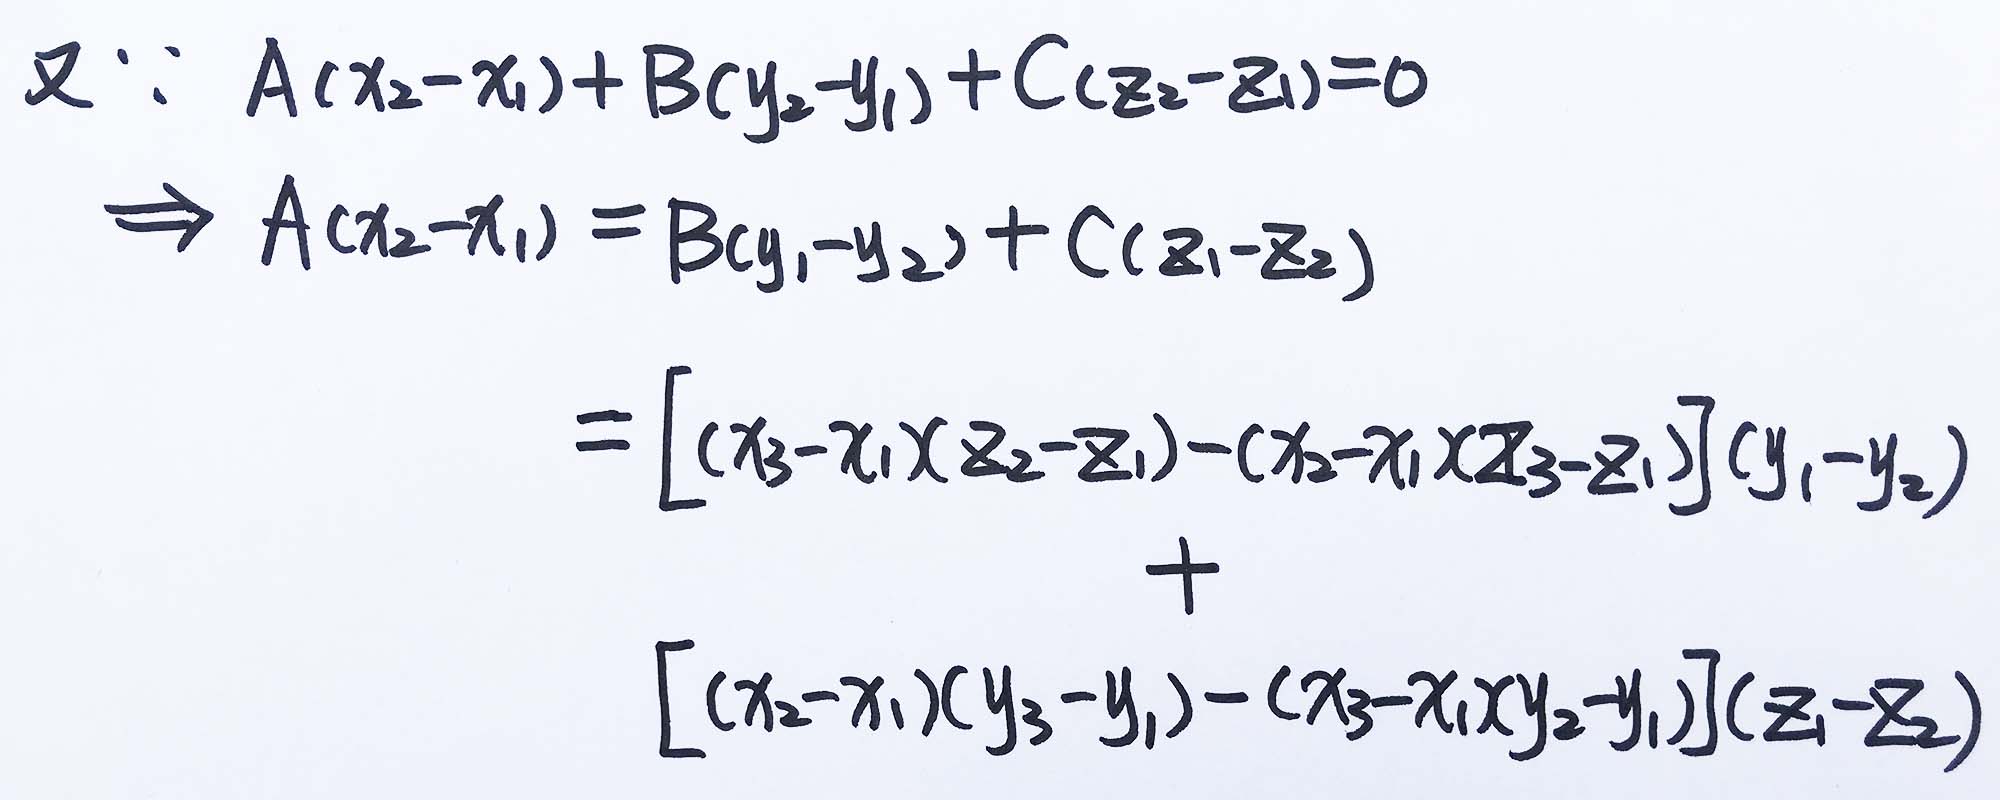 又∵ A(x₂-x₁)+B(y₂-y₁)+C(z₂-z₁)=0
⇒ A(x₂-x₁)=B(y₁-y₂)+C(z₁-z₂)
=[(x₃-x₁)(z₂-z₁)-(x₂-x₁)(z₃-z₁)](y₁-y₂)
+
[(x₂-x₁)(y₃-y₁)-(x₃-x₁)(y₂-y₁)](z₁-z₂)